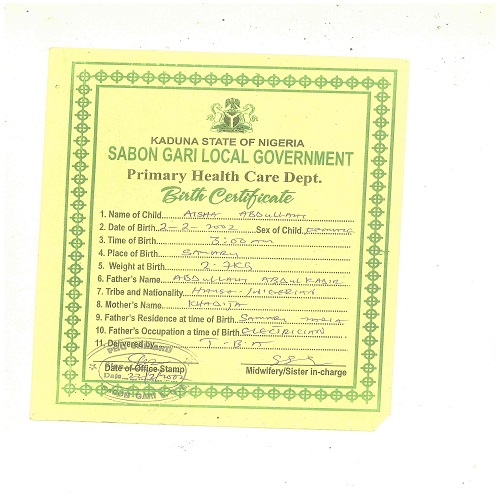 KADUNA STATE OF NIGERIA
SABON GARI LOCAL GOVERNMENT
Primary Health Care Dept.
Birth Certificate
1. Name of Child AISHA ABDULLAHI
2. Date of Birth 2-2-2002 Sex of Child FEMALE
3. Time of Birth 3:00 am
4. Place of Birth SAMARU
5. Weight at Birth 2.7KG
6. Father's Name ABDULLAHI ABDULKADIR
7. Tribe and Nationality HAUSA/NIGERIAN
8. Mother's Name KHADIJA
9. Father's Residence at time of Birth SAMARU
10. Father's Occupation a time of Birth ELECTRICIAN
11. Delivered by T.B.A
Date of Office Stamp Midwifery/Sister in-charge
Date
SABON GARI